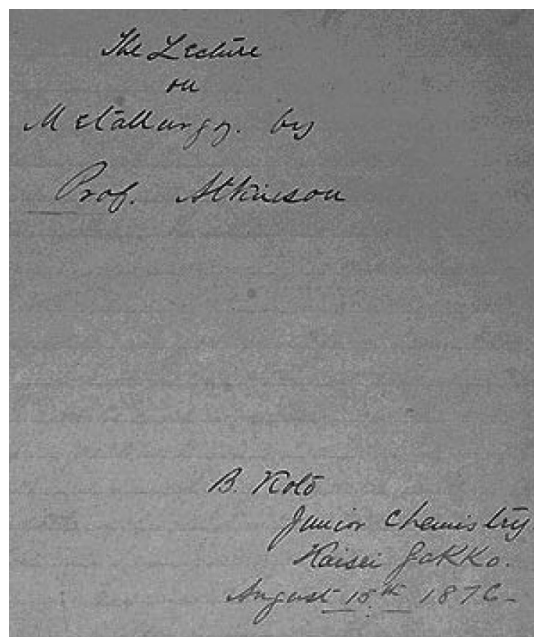 The Lecture
on
Metallurgy. by
Prof. Atkinson
B. Koto
Junior Chemistry
Kaisei Gakko.
August 15th 1876